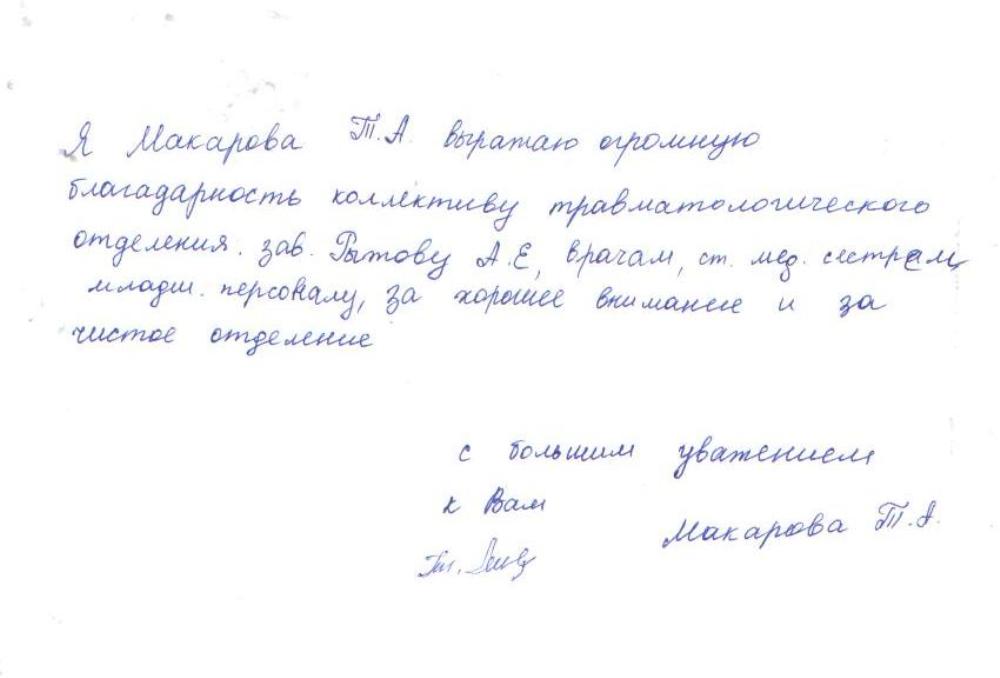 Я Макарова Т.А. выражаю огромную
благадарность коллективу травматологического
отделения. зав. Рытову А.Е, врачам, ст. мед. сестрам,
младш. персоналу, за хорошее внимание и за
чистое отделение
с большим уважением
к Вам
Макарова Т.А.